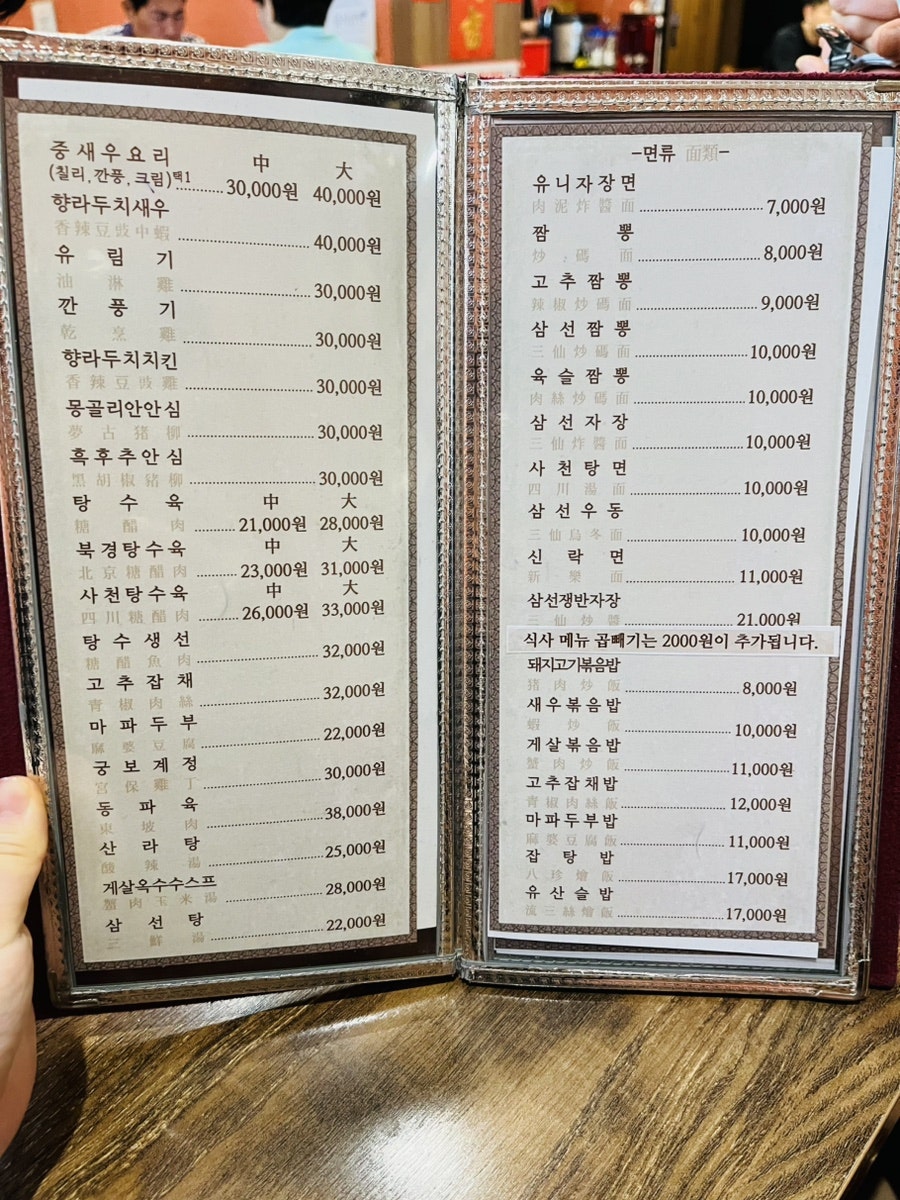 중새우요리 中 大
(칠리,깐풍,크림)택1 30,000원 40,000원
향라두치새우
香辣豆豉中蝦 40,000원
유림기
油淋雞 30,000원
깐풍기
乾烹雞 30,000원
향라두치치킨
香辣豆豉雞 30,000원
몽골리안안심
夢古猪柳 30,000원
흑후추안심
黑胡椒猪柳 30,000원
탕수육 中 大
糖醋肉 21,000원 28,000원
북경탕수육 中 大
北京糖醋肉 23,000원 31,000원
사천탕수육 中 大
四川糖醋肉 26,000원 33,000원
탕수생선
糖醋魚肉 32,000원
고추잡채
青椒肉絲 32,000원
마파두부
麻婆豆腐 22,000원
궁보계정
宮保雞丁 30,000원
동파육
東坡肉 38,000원
산라탕
酸辣湯 25,000원
게살옥수수스프
蟹肉玉米湯 28,000원
삼선탕
三鮮湯 22,000원
-면류 面類-
유니자장면
肉泥炸醬面 7,000원
짬뽕
炒碼面 8,000원
고추짬뽕
辣椒炒碼面 9,000원
삼선짬뽕
三仙炒碼面 10,000원
육슬짬뽕
肉絲炒碼面 10,000원
삼선자장
三仙炸醬面 10,000원
사천탕면
四川湯面 10,000원
삼선우동
三仙烏冬面 10,000원
신락면
新樂面 11,000원
삼선쟁반자장
三仙炒醬 21,000원
식사 메뉴 곱빼기는 2000원이 추가됩니다.
돼지고기볶음밥
猪肉炒飯 8,000원
새우볶음밥
蝦炒飯 10,000원
게살볶음밥
蟹肉炒飯 11,000원
고추잡채밥
青椒肉絲飯 12,000원
마파두부밥
麻婆豆腐飯 11,000원
잡탕밥
八珍燴飯 17,000원
유산슬밥
流三絲燴飯 17,000원